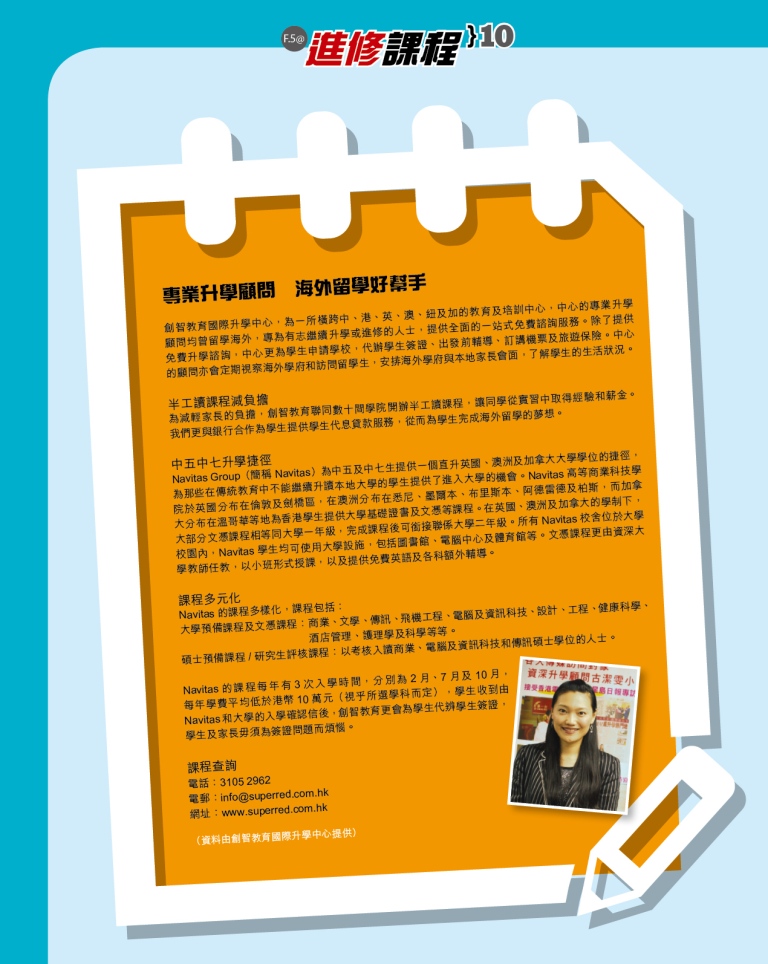 F.5@ 進修課程 10
專業升學顧問 海外留學好幫手
創智教育國際升學中心，為一所橫跨中、港、英、澳、紐及加的教育及培訓中心，中心的專業升學
顧問均曾留學海外，專為有志繼續升學或進修的人士，提供全面的一站式免費諮詢服務。除了提供
免費升學諮詢，中心更為學生申請學校，代辦學生簽證、出發前輔導、訂購機票及旅遊保險。中心
的顧問亦會定期視察海外學府和訪問留學生，安排海外學府與本地家長會面，了解學生的生活狀況。
半工讀課程減負擔
為減輕家長的負擔，創智教育聯同數十間學院開辦半工讀課程，讓同學從實習中取得經驗和薪金。
我們更與銀行合作為學生提供學生代息貸款服務，從而為學生完成海外留學的夢想。
中五中七升學捷徑
Navitas Group（簡稱 Navitas）為中五及中七生提供一個直升英國、澳洲及加拿大大學學位的捷徑，
為那些在傳統教育中不能繼續升讀本地大學的學生提供了進入大學的機會。Navitas 高等商業科技學
院於英國分布在倫敦及劍橋區，在澳洲分布在悉尼、墨爾本、布里斯本、阿德雷德及柏斯，而加拿
大分布在溫哥華等地為香港學生提供大學基礎證書及文憑等課程。在英國、澳洲及加拿大的學制下，
大部分文憑課程相等同大學一年級，完成課程後可銜接聯係大學二年級。所有 Navitas 校舍位於大學
校園內，Navitas 學生均可使用大學設施，包括圖書館、電腦中心及體育館等。文憑課程更由資深大
學教師任教，以小班形式授課，以及提供免費英語及各科額外輔導。
課程多元化
Navitas 的課程多樣化，課程包括：
大學預備課程及文憑課程：商業、文學、傳訊、飛機工程、電腦及資訊科技、設計、工程、健康科學、
酒店管理、護理學及科學等等。
碩士預備課程 / 研究生評核課程：以考核入讀商業、電腦及資訊科技和傳訊碩士學位的人士。
Navitas 的課程每年有 3 次入學時間，分別為 2 月、7 月及 10 月，
每年學費平均低於港幣 10 萬元（視乎所選學科而定），學生收到由
Navitas 和大學的入學確認信後，創智教育更會為學生代辨學生簽證，
學生及家長毋須為簽證問題而煩惱。
資深升學顧問古潔雯小
課程查詢
電話：3105 2962
電郵：info@superred.com.hk
網址：www.superred.com.hk
（資料由創智教育國際升學中心提供）